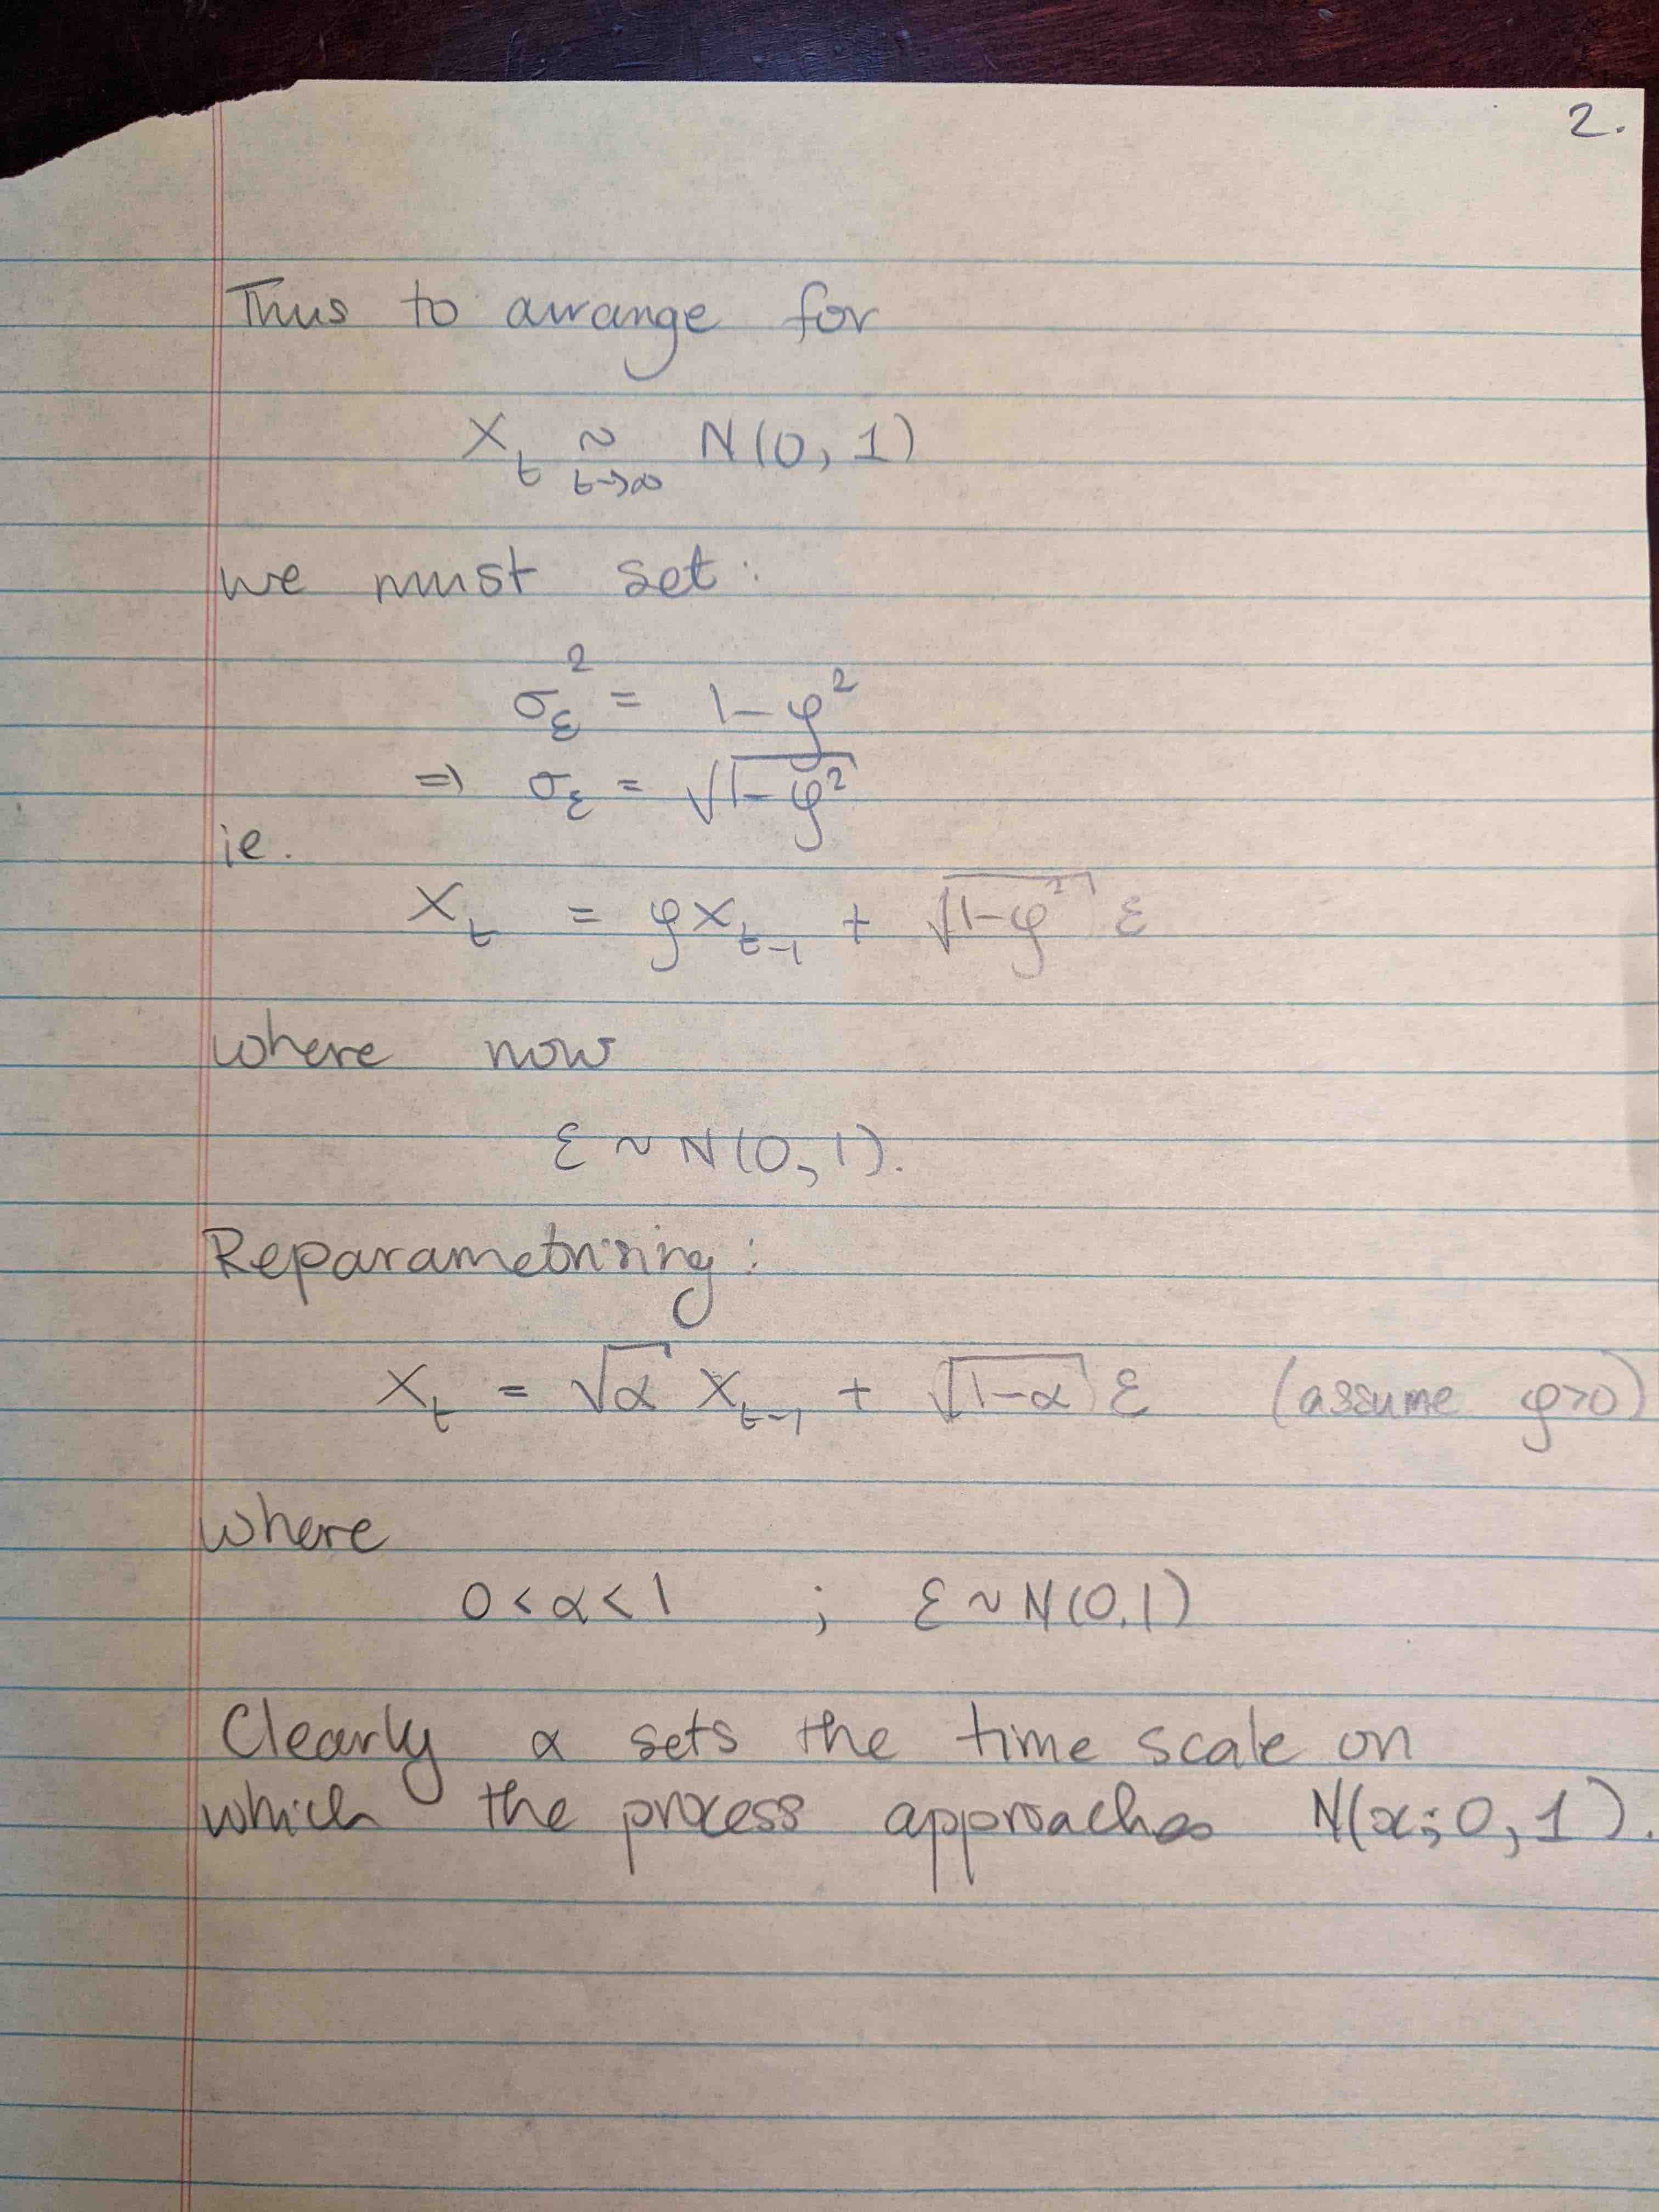 2.
Thus to arrange for
X_t ~_{t→∞} N(0, 1)
we must set:
σ_ε^2 = 1-φ^2
⇒ σ_ε = √(1-φ^2)
ie.
X_t = φX_{t-1} + √(1-φ^2) ε
where now
ε ~ N(0, 1).
Reparametrizing:
X_t = √α X_{t-1} + √(1-α) ε (assume φ>0)
where
0 < α < 1 ; ε ~ N(0,1)
Clearly α sets the time scale on
which the process approaches N(x; 0, 1).